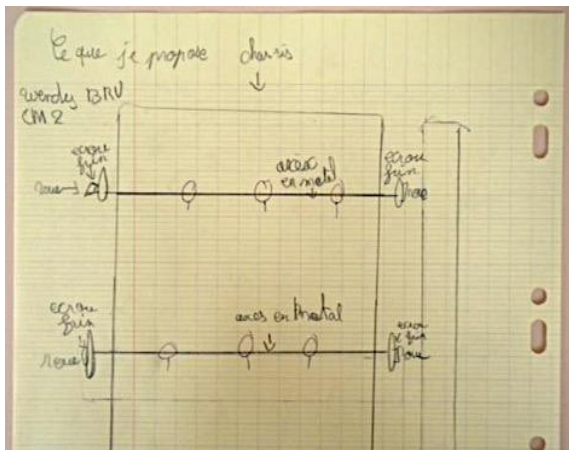 Ce que je propose
chassis
wendy BRU
CM2
ecrou
fin
axes
en metal
ecrou
fin
roue
roue
ecrou
fin
axes en metal
ecrou
fin
roue
roue